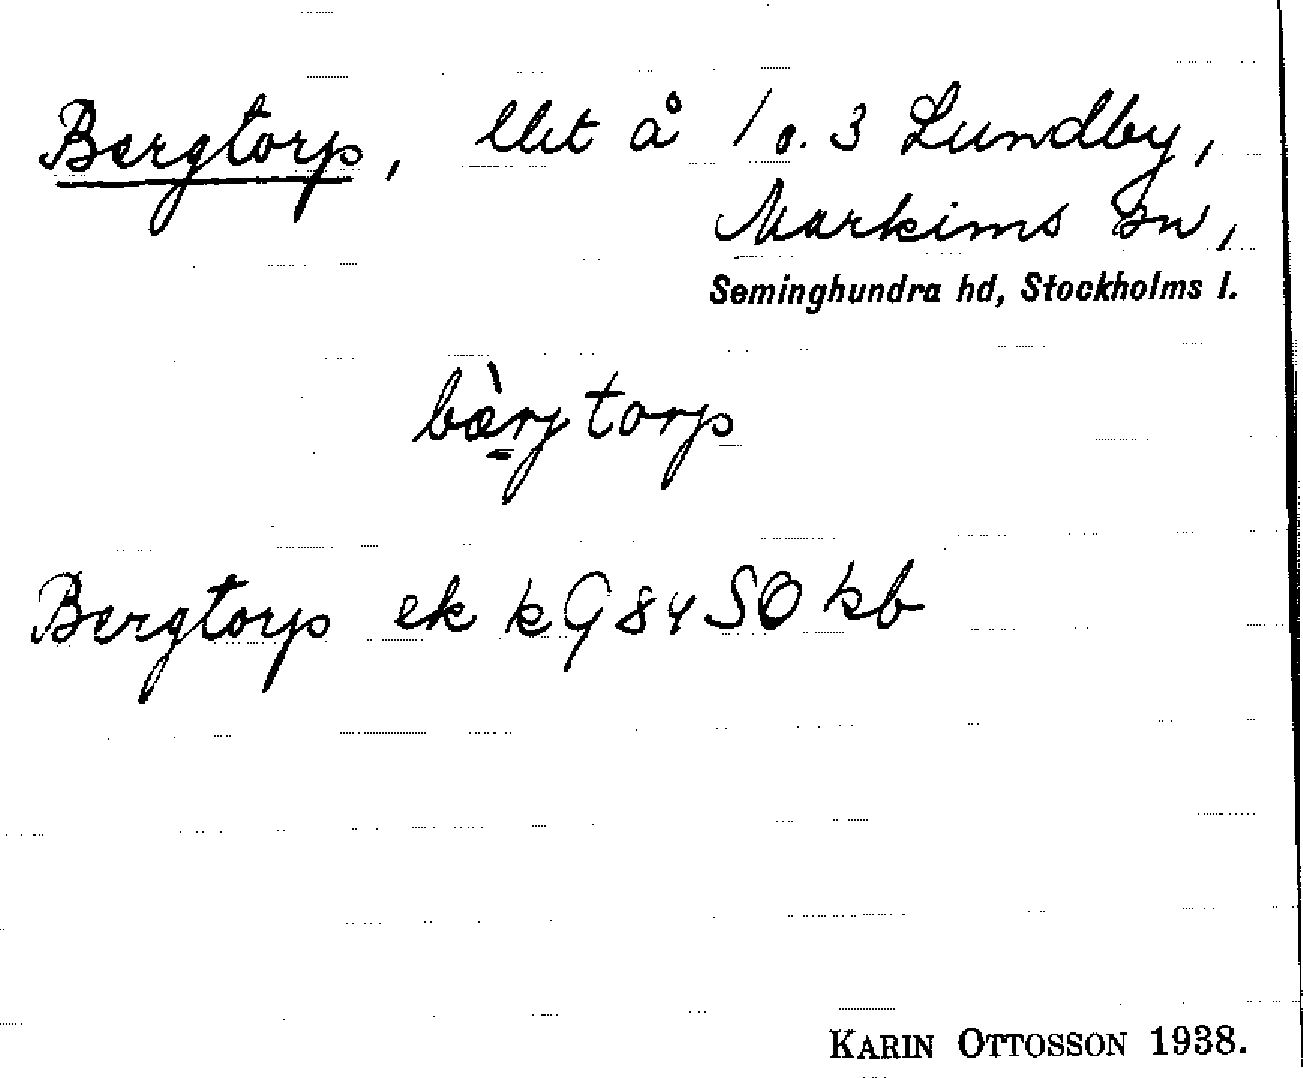 Bergtorp, llet å 1 o. 3 Lundby,
Markims sn,
Seminghundra hd, Stockholms l.
bæ̀rj torp
Bergtorp ek k G 84 SO kb
KARIN OTTOSSON 1938.